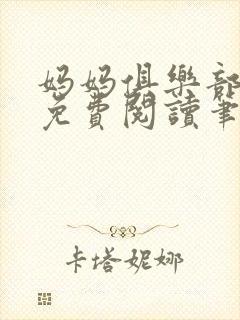 媽媽俱樂部
免費閱讀筆
卡塔妮娜